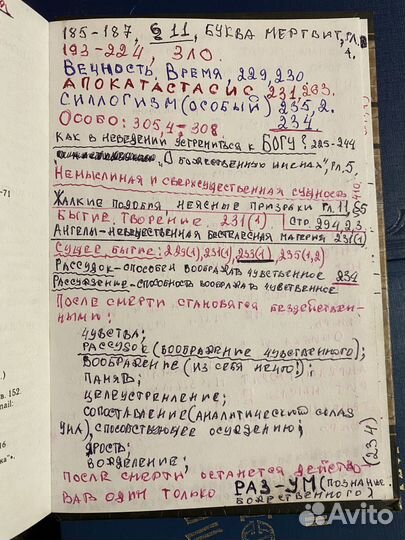 185-187, § 11, БУКВА МЕРТВИТ, ГЛ. 4.
193-224, ЗЛО.
ВЕЧНОСТЬ, ВРЕМЯ, 229, 230.
АПОКАТАСТАСИС, 231, 263.
СИЛЛОГИЗМ (ОСОБЫЙ) 235, 2.
234
ОСОБО: 305, 4-308.
КАК В НЕВЕДЕНИИ УСТРЕМИТЬСЯ К БОГУ? 225-244
"О БОЖЕСТВЕННЫХ ИМЕНАХ", ГЛ. 5.
НЕМЫСЛИМАЯ И СВЕРХСУЩЕСТВЕННАЯ СУЩНОСТЬ
ЖАЛКИЕ ПОДОБИЯ НЕЯСНЫЕ ПРИЗРАКИ ГЛ. 11, §6
БЫТИЕ, ТВОРЕНИЕ 231(1) СТР. 294, 2, 3.
АНГЕЛЫ-НЕВЕЩЕСТВЕННАЯ БЕСТЕЛЕСНАЯ МАТЕРИЯ 231(1)
СУЩЕЕ БЫТИЕ: 229(1), 231(1), 233(1), 235(1,2)
РАССУДОК-СПОСОБЕН ВООБРАЖАТЬ ЧУВСТВЕННОЕ 234
РАССУЖДЕНИЕ-СПОСОБНОСТЬ ВООБРАЖАТЬ ЧУВСТВЕННОЕ
ПОСЛЕ СМЕРТИ СТАНОВЯТСЯ БЕЗДЕЙСТВЕН-
НЫМИ:
ЧУВСТВА;
РАССУДОК (ВООБРАЖЕНИЕ ЧУВСТВЕННОГО);
ВООБРАЖЕНИЕ (ИЗ СЕБЯ НЕЧТО!);
ПАМЯТЬ;
ЦЕЛЕУСТРЕМЛЕНИЕ;
СОПОСТАВЛЕНИЕ (АНАЛИТИЧЕСКИЙ СКЛАД
УМА), СПОСОБСТВУЮЩЕЕ ОСУЖДЕНИЮ;
ЯРОСТЬ;
ВОЖДЕЛЕНИЕ;
(234)
ПОСЛЕ СМЕРТИ ОСТАНЕТСЯ ДЕЙСТВО
ВАТЬ ОДИН ТОЛЬКО РАЗ-УМ (ПОЗНАНИЕ
БОЖЕСТВЕННОГО)
-71
в. 152
mail:
16
ка".
Avito